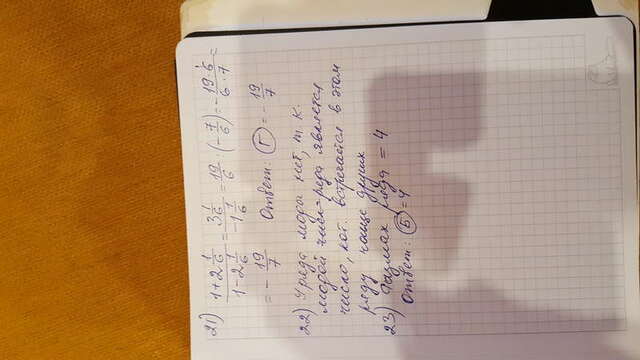 21) (1+2 1/6)/(1-2 1/6) = (3 1/6)/(-1 1/6) = 19/6 · (-7/6) = -(19·6)/(6·7) =
= - 19/7 Ответ: Г = - 19/7
22) У ряда моды нет, т.к.
модой числ-ряда является
число, кот. встречается в этом
ряду чаще других
23) Размах ряда = 4
Ответ: Б = 4